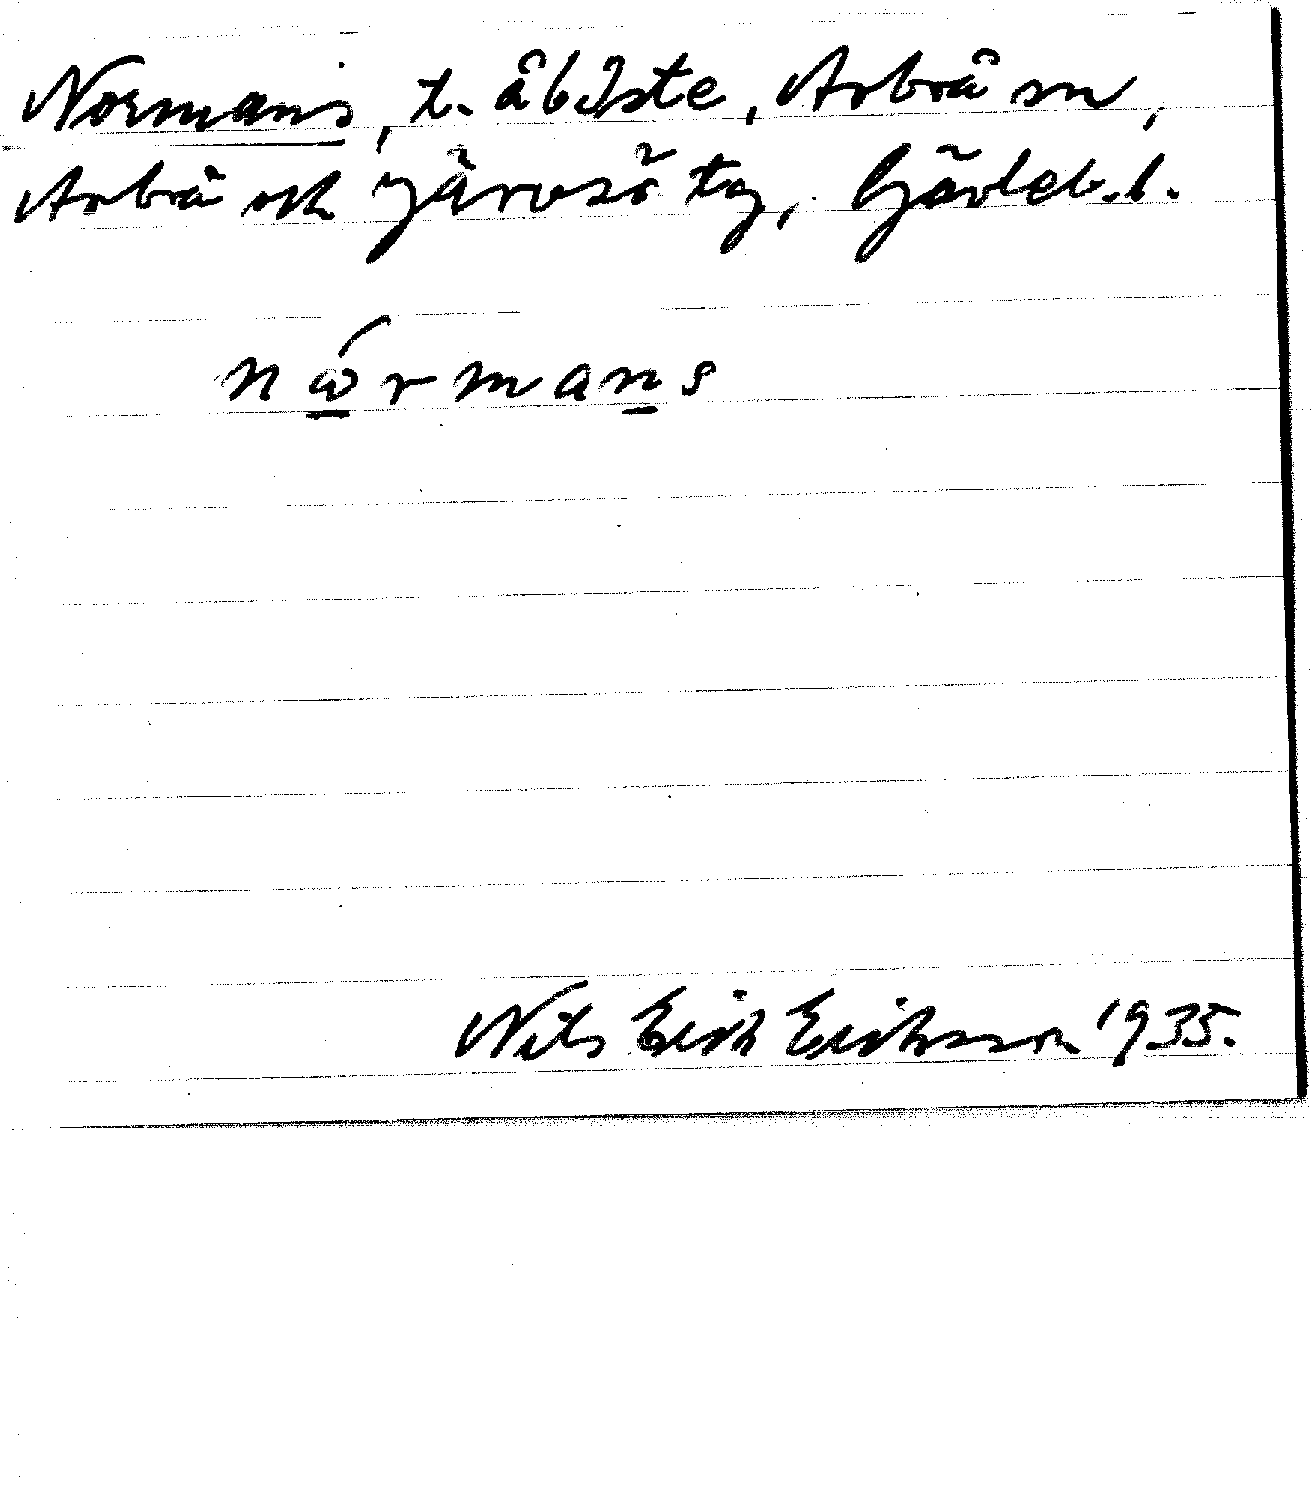 Normans, t. åb 2ste, Arbrå sn,
Arbrå och Järvsö tg, Gävleb. l.
nωŕmans
Nils Erik Eriksson 1935.